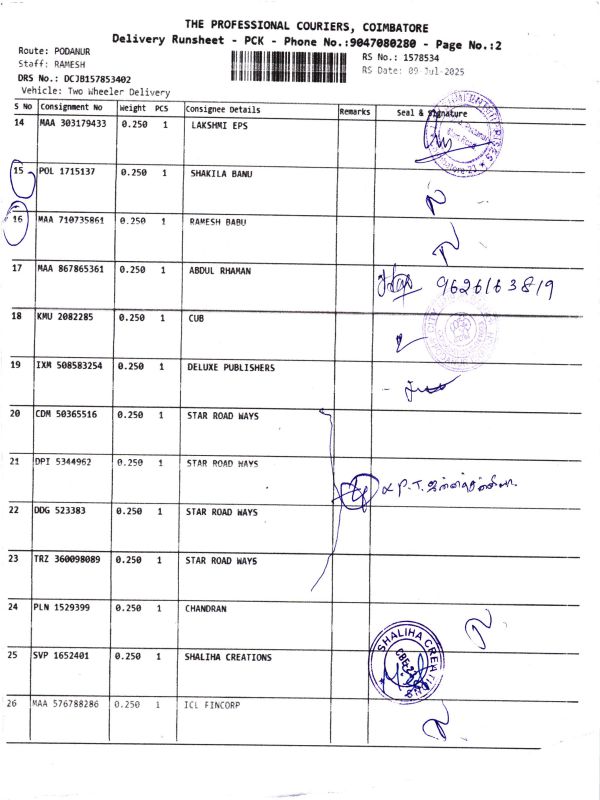 THE PROFESSIONAL COURIERS, COIMBATORE
Delivery Runsheet - PCK - Phone No.:9047080280 - Page No.:2
Route: PODANUR
Staff: RAMESH
DRS No.: DCJB157853402
Vehicle: Two Wheeler Delivery
RS No.: 1578534
RS Date: 09-Jul-2025
S No Consignment No Weight PCS Consignee Details Remarks Seal & Signature
14 MAA 303179433 0.250 1 LAKSHMI EPS
15 POL 1715137 0.250 1 SHAKILA BANU
16 MAA 710735861 0.250 1 RAMESH BABU
17 MAA 867865361 0.250 1 ABDUL RHAMAN 9626163819
18 KMU 2082285 0.250 1 CUB
19 IXM 508583254 0.250 1 DELUXE PUBLISHERS
20 CDM 50365516 0.250 1 STAR ROAD WAYS
21 DPI 5344962 0.250 1 STAR ROAD WAYS
22 DDG 523383 0.250 1 STAR ROAD WAYS
23 TRZ 360098089 0.250 1 STAR ROAD WAYS
24 PLN 1529399 0.250 1 CHANDRAN
25 SVP 1652401 0.250 1 SHALIHA CREATIONS
SHALIHA CREATIONS
26 MAA 576788286 0.250 1 ICL FINCORP